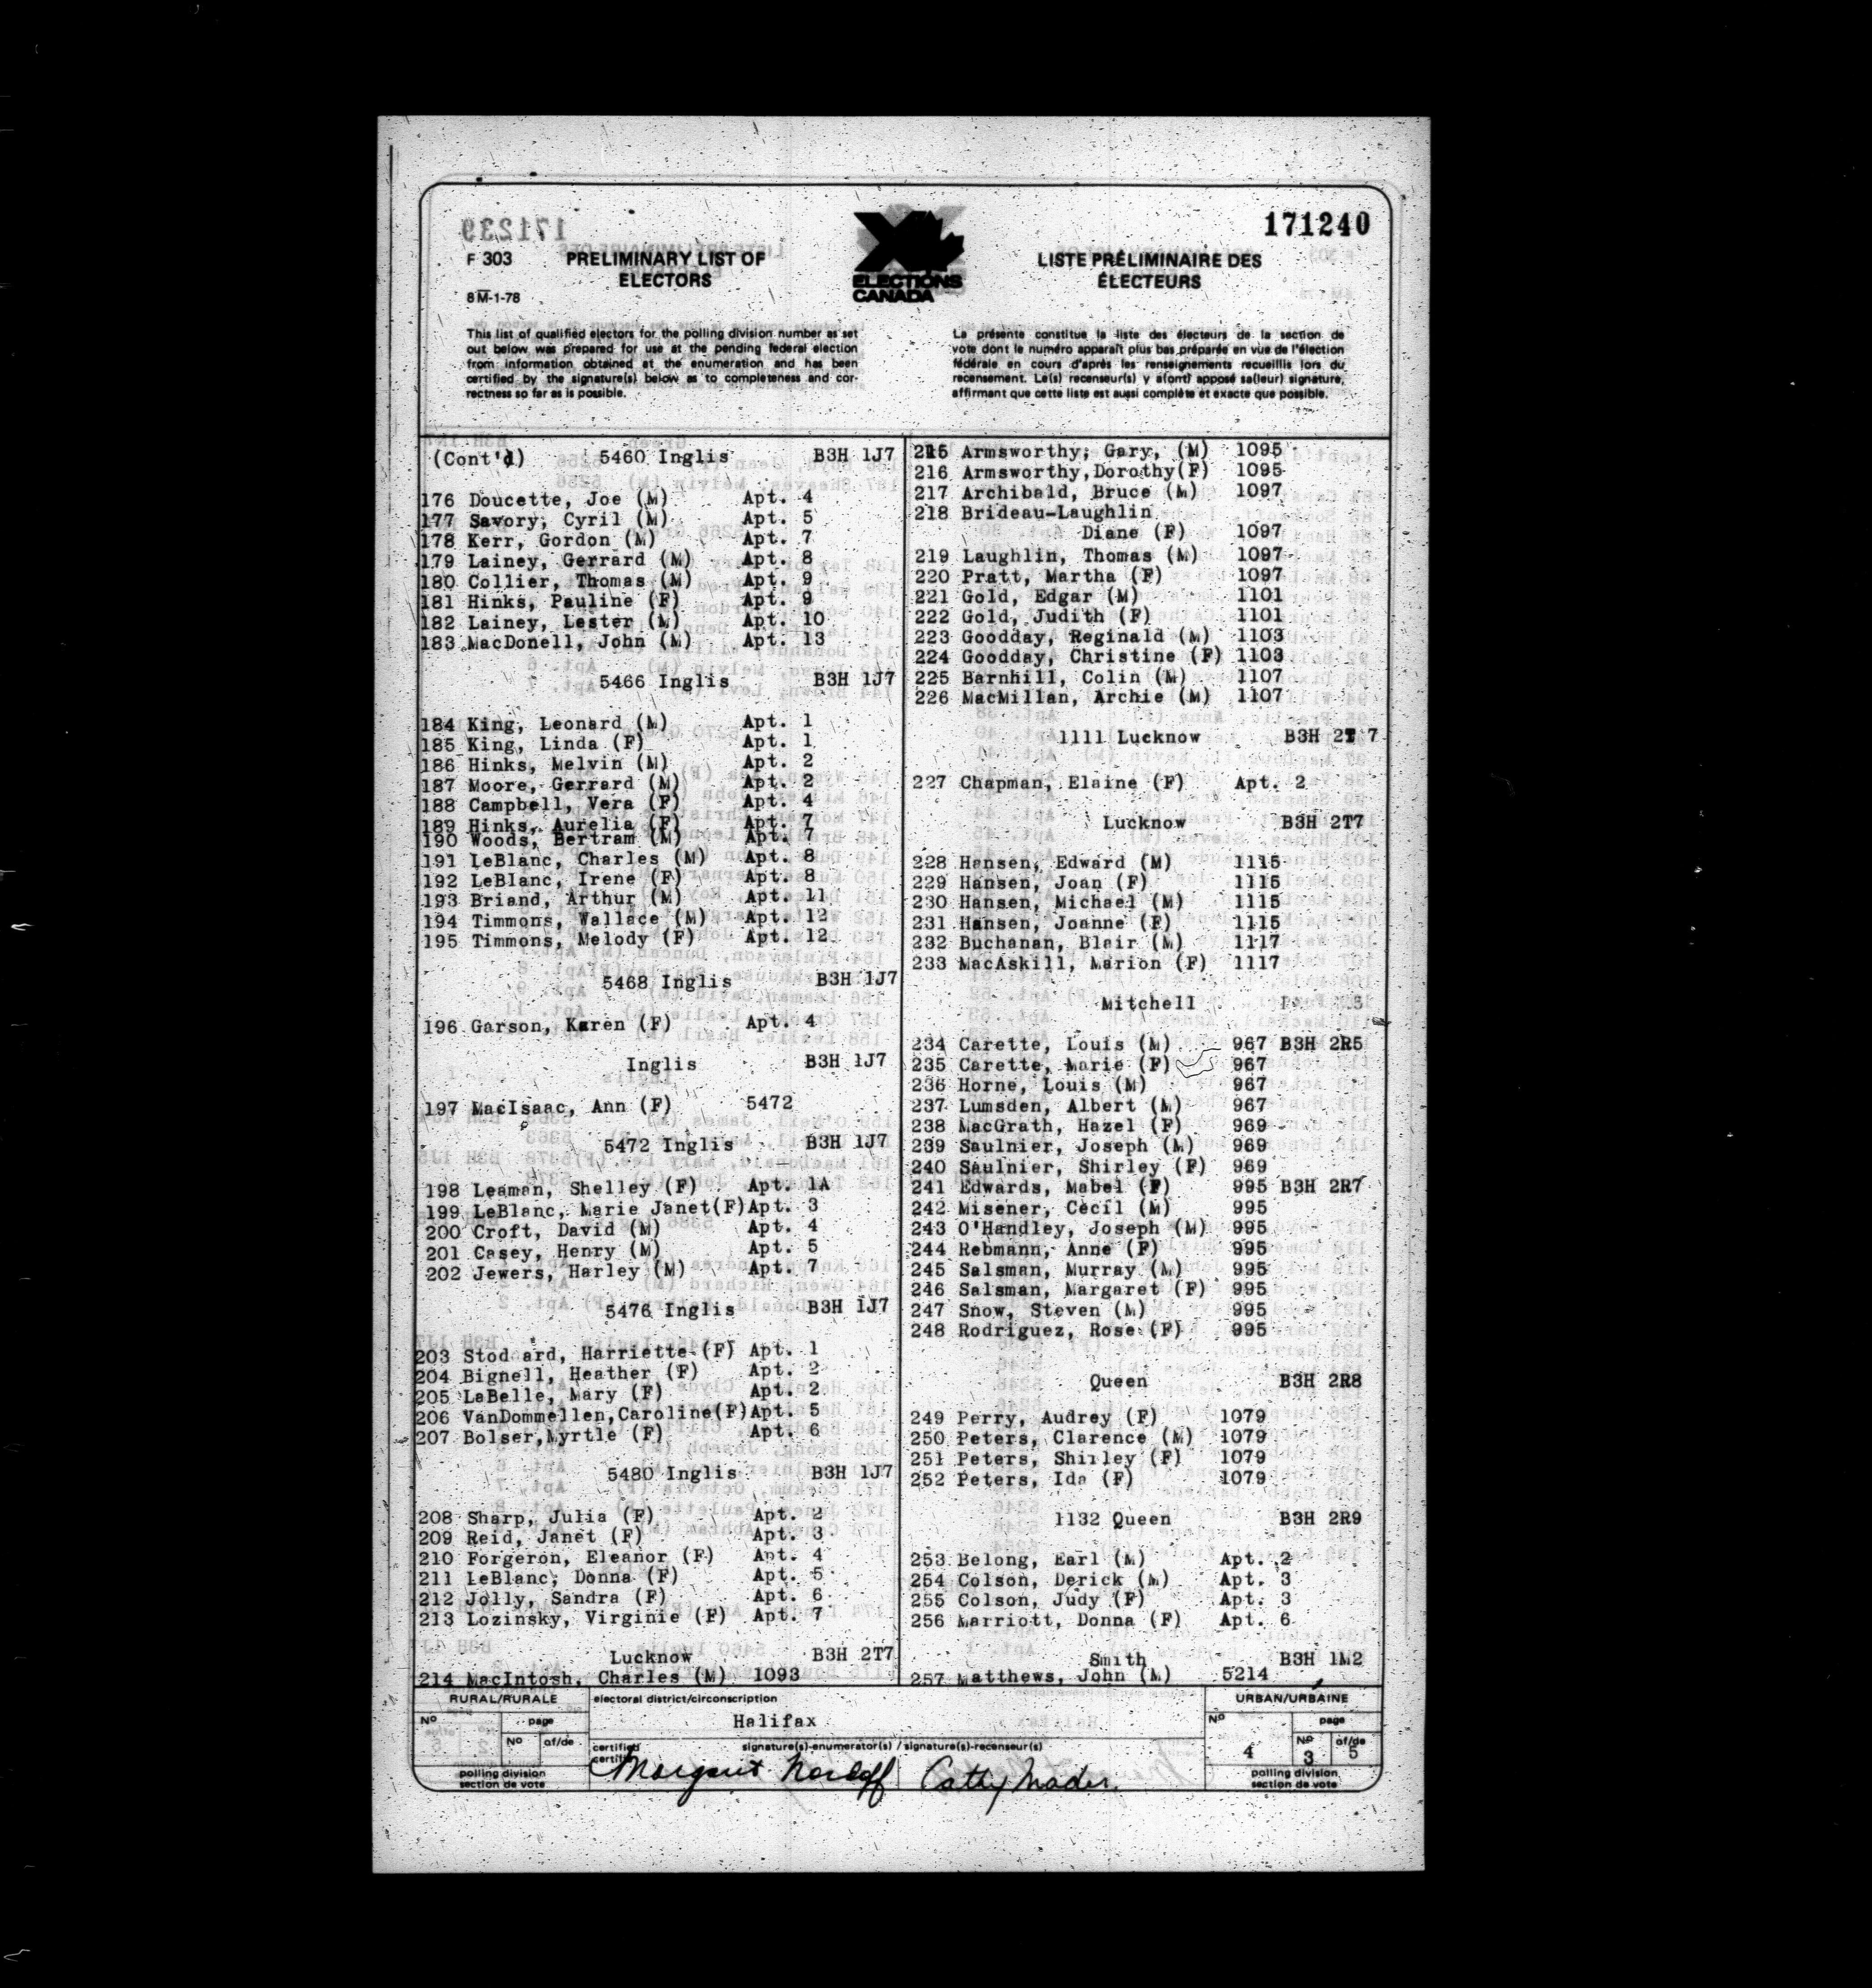 171240
F 303
PRELIMINARY LIST OF
ELECTORS
8M-1-78
ELECTIONS
CANADA
LISTE PRÉLIMINAIRE DES
ÉLECTEURS
This list of qualified electors for the polling division number as set
out below was prepared for use at the pending federal election
from information obtained at the enumeration and has been
certified by the signature(s) below as to completeness and cor-
rectness so far as is possible.
La présente constitue la liste des électeurs de la section de
vote dont le numéro apparaît plus bas préparée en vue de l'élection
fédérale en cours d'après les renseignements recueillis lors du
recensement. Le(s) recenseur(s) y a(ont) apposé sa(leur) signature,
affirmant que cette liste est aussi complète et exacte que possible.
(Cont'd) 5460 Inglis B3H 1J7
176 Doucette, Joe (M) Apt. 4
177 Savory, Cyril (M) Apt. 5
178 Kerr, Gordon (M) Apt. 7
179 Lainey, Gerrard (M) Apt. 8
180 Collier, Thomas (M) Apt. 9
181 Hinks, Pauline (F) Apt. 9
182 Lainey, Lester (M) Apt. 10
183 MacDonell, John (M) Apt. 13
5466 Inglis B3H 1J7
184 King, Leonard (M) Apt. 1
185 King, Linda (F) Apt. 1
186 Hinks, Melvin (M) Apt. 2
187 Moore, Gerrard (M) Apt. 2
188 Campbell, Vera (F) Apt. 4
189 Hinks, Aurelia (F) Apt. 7
190 Woods, Bertram (M) Apt. 7
191 LeBlanc, Charles (M) Apt. 8
192 LeBlanc, Irene (F) Apt. 8
193 Briand, Arthur (M) Apt. 11
194 Timmons, Wallace (M) Apt. 12
195 Timmons, Melody (F) Apt. 12
5468 Inglis B3H 1J7
196 Garson, Karen (F) Apt. 4
Inglis B3H 1J7
197 MacIsaac, Ann (F) 5472
5472 Inglis B3H 1J7
198 Leaman, Shelley (F) Apt. 1A
199 LeBlanc, Marie Janet(F) Apt. 3
200 Croft, David (M) Apt. 4
201 Casey, Henry (M) Apt. 5
202 Jewers, Harley (M) Apt. 7
5476 Inglis B3H 1J7
203 Stod ard, Harriette (F) Apt. 1
204 Bignell, Heather (F) Apt. 2
205 LaBelle, Mary (F) Apt. 2
206 VanDommellen,Caroline(F)Apt. 5
207 Bolser,Myrtle (F) Apt. 6
5480 Inglis B3H 1J7
208 Sharp, Julia (F) Apt. 2
209 Reid, Janet (F) Apt. 3
210 Forgeron, Eleanor (F) Apt. 4
211 LeBlanc, Donna (F) Apt. 5
212 Jolly, Sandra (F) Apt. 6
213 Lozinsky, Virginie (F) Apt. 7
Lucknow B3H 2T7
214 MacIntosh, Charles (M) 1093
215 Armsworthy, Gary, (M) 1095
216 Armsworthy,Dorothy(F) 1095
217 Archibald, Bruce (M) 1097
218 Brideau-Laughlin
Diane (F) 1097
219 Laughlin, Thomas (M) 1097
220 Pratt, Martha (F) 1097
221 Gold, Edgar (M) 1101
222 Gold, Judith (F) 1101
223 Goodday, Reginald (M) 1103
224 Goodday, Christine (F) 1103
225 Barnhill, Colin (M) 1107
226 MacMillan, Archie (M) 1107
1111 Lucknow B3H 2T 7
227 Chapman, Elaine (F) Apt. 2
Lucknow B3H 2T7
228 Hansen, Edward (M) 1115
229 Hansen, Joan (F) 1115
230 Hansen, Michael (M) 1115
231 Hansen, Joanne (F) 1115
232 Buchanan, Blair (M) 1117
233 MacAskill, Marion (F) 1117
Mitchell
234 Carette, Louis (M) 967 B3H 2R5
235 Carette, Marie (F) 967
236 Horne, Louis (M) 967
237 Lumsden, Albert (M) 967
238 MacGrath, Hazel (F) 969
239 Saulnier, Joseph (M) 969
240 Saulnier, Shirley (F) 969
241 Edwards, Mabel (F) 995 B3H 2R7
242 Misener, Cecil (M) 995
243 O'Handley, Joseph (M) 995
244 Rebmann, Anne (F) 995
245 Salsman, Murray (M) 995
246 Salsman, Margaret (F) 995
247 Snow, Steven (M) 995
248 Rodriguez, Rose (F) 995
Queen B3H 2R8
249 Perry, Audrey (F) 1079
250 Peters, Clarence (M) 1079
251 Peters, Shirley (F) 1079
252 Peters, Ida (F) 1079
1132 Queen B3H 2R9
253 Belong, Earl (M) Apt. 2
254 Colson, Derick (M) Apt. 3
255 Colson, Judy (F) Apt. 3
256 Marriott, Donna (F) Apt. 6
Smith B3H 1M2
257 Matthews, John (M) 5214
RURAL/RURALE
No page
No of/de
polling division
section de vote
electoral district/circonscription
Halifax
certified signature(s)-enumerator(s) / signature(s)-recenseur(s)
certifié
Margaret Cathy Mader
URBAN/URBAINE
No page
No of/de
4 3 5
polling division
section de vote